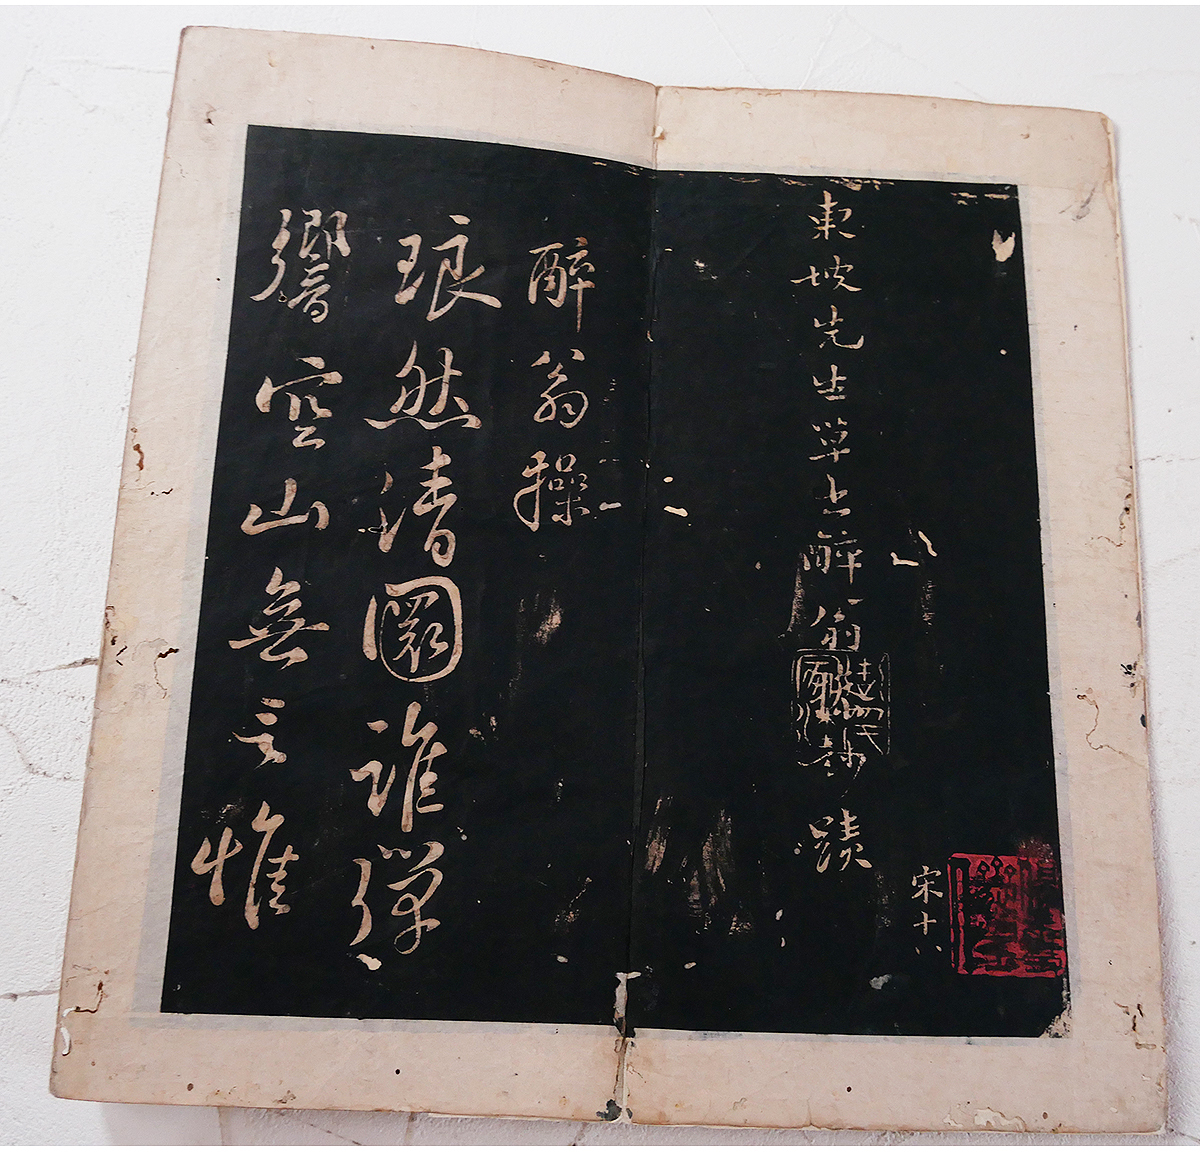 東坡先生草書醉翁操妙蹟
宋十八
醉翁操
琅然清圜誰彈
響空山無言惟